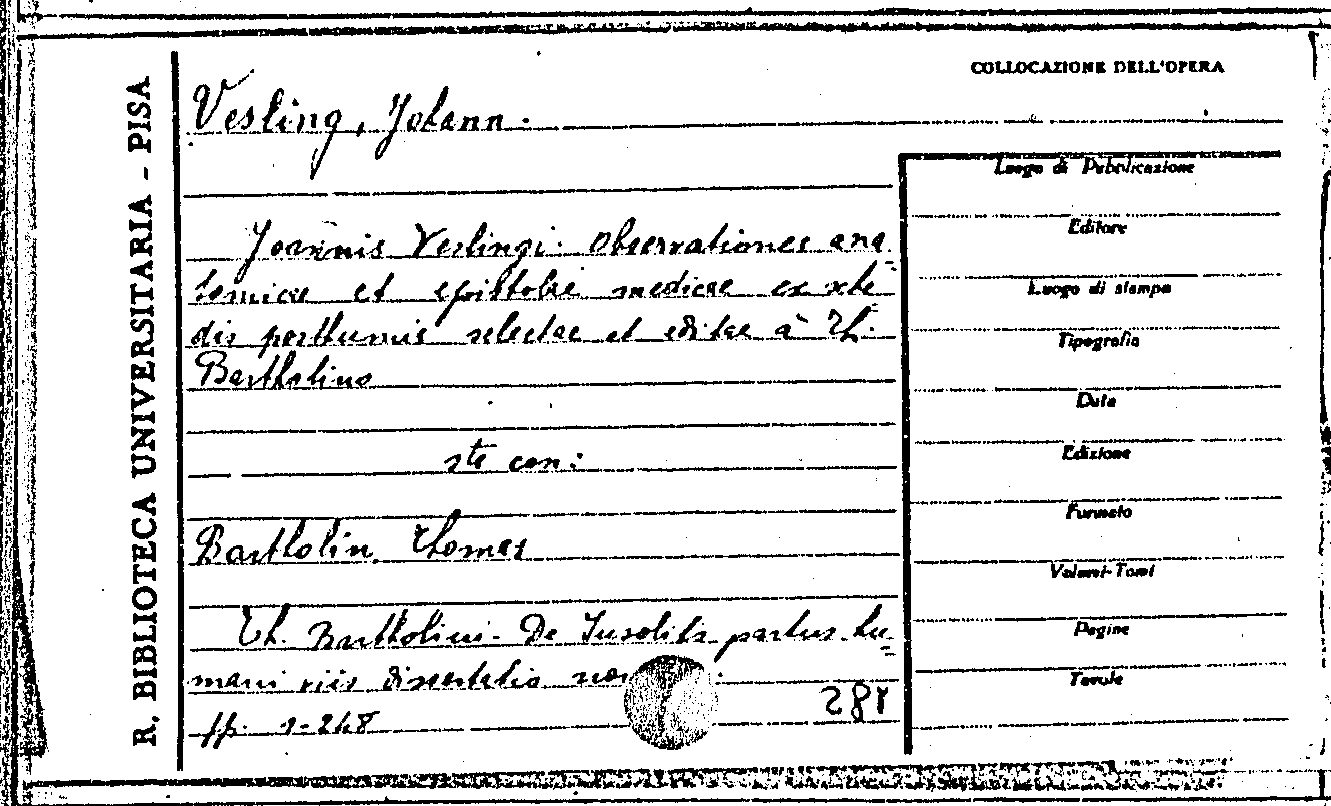 R. BIBLIOTECA UNIVERSITARIA - PISA
COLLOCAZIONE DELL'OPERA
Vesling, Johann.
Joannis Veslingi. Observationes ana
tomicae et epistolae medicae ex sche
dis posthumis selectae et editae à Th.
Bartholino
sta con:
Bartholin, Thomas
Th. Bartholini. De Insolitis partus hu=
mani viis dissertatio
pp. 1-248
281
Luogo di Pubblicazione
Editore
Luogo di stampa
Tipografia
Data
Edizione
Formato
Volumi-Tomi
Pagine
Tavole